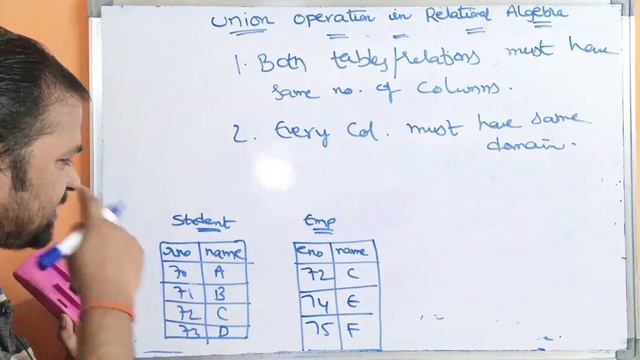 union operation in Relational Algebra
1. Both tables/relations must have
same no. of Columns.
2. Every Col. must have same
domain.
Student
sno name
70 A
71 B
72 C
73 D
Emp
eno name
72 C
74 E
75 F